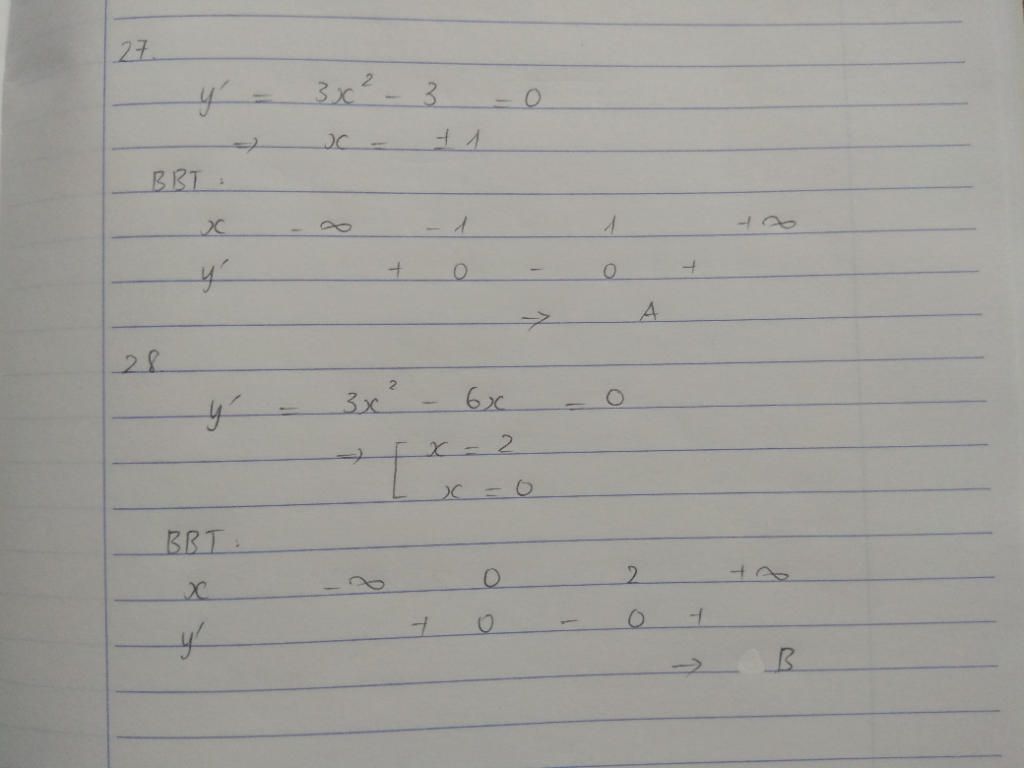 27.
y' = 3x² - 3 = 0
⇒ x = ±1
BBT :
x -∞ -1 1 +∞
y' + 0 - 0 +
→ A
28
y' = 3x² - 6x = 0
⇒ [ x = 2
x = 0
BBT :
x -∞ 0 2 +∞
y' + 0 - 0 +
→ B